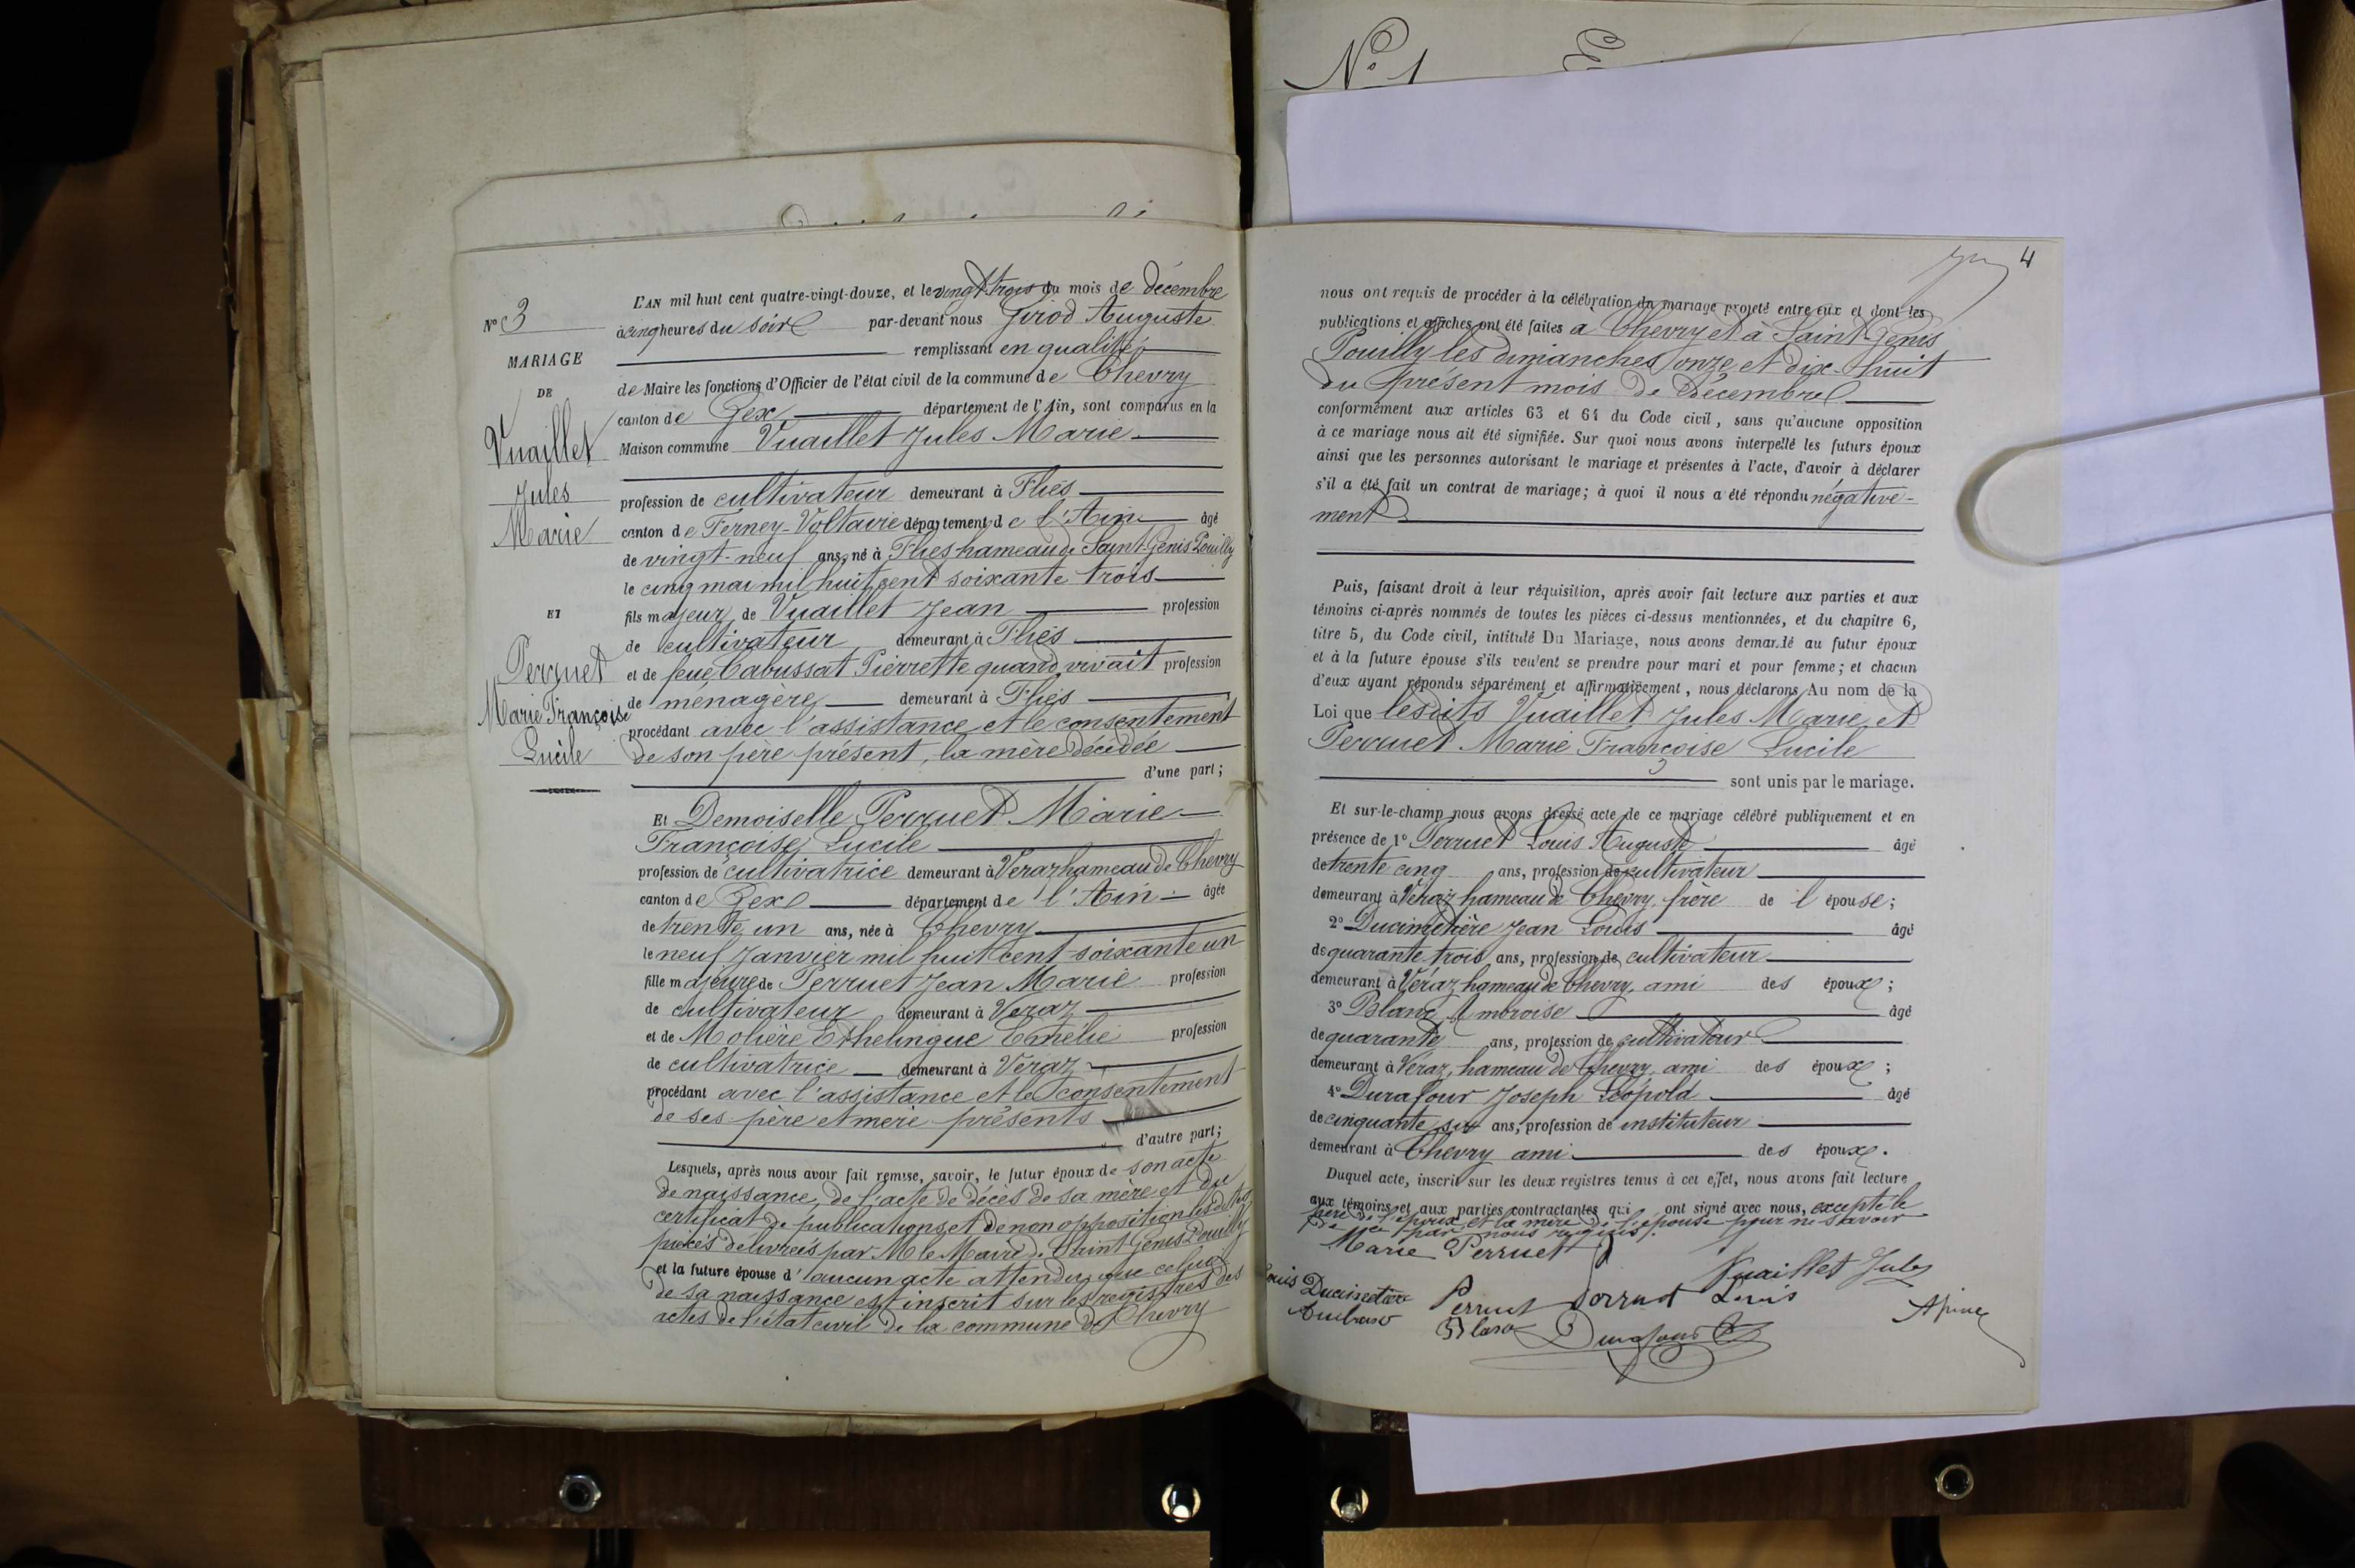 N° 3
MARIAGE
DE
Vuaillet
Jules
Marie
ET
Perruet
Marie Françoise
Lucile
L'AN mil huit cent quatre-vingt-douze, et le vingt-trois du mois de décembre
à cinq heures du soir par-devant nous Girod Auguste
remplissant en qualité
de Maire les fonctions d'Officier de l'état civil de la commune de Chevry
canton de Gex département de l'Ain, sont comparus en la
Maison commune Vuaillet Jules Marie
profession de cultivateur demeurant à Flies
canton de Ferney-Voltaire département de l'Ain âgé
de vingt-neuf ans, né à Flies hameau de Saint-Genis Pouilly
le cinq mai mil huit cent soixante trois
fils majeur de Vuaillet Jean profession
de cultivateur demeurant à Flies
et de feue Cabussat Pierrette quand vivait profession
de ménagère demeurant à Flies
procédant avec l'assistance et le consentement
de son père présent, la mère décédée
d'une part;
Et Demoiselle Perruet Marie
Françoise Lucile
profession de cultivatrice demeurant à Veraz hameau de Chevry
canton de Gex département de l'Ain âgée
de trente un ans, née à Chevry
le neuf Janvier mil huit cent soixante un
fille majeure de Perruet Jean Marie profession
de cultivateur demeurant à Veraz
et de Molière Ethelingue Emélie profession
de cultivatrice demeurant à Véraz
procédant avec l'assistance et le consentement
de ses père et mère présents
d'autre part;
Lesquels, après nous avoir fait remise, savoir, le futur époux de son acte
de naissance, de l'acte de décès de sa mère et du
certificat de publications et de non opposition lesdites
pièces délivrées par M le Maire de Saint Genis Pouilly
et la future épouse d'aucun acte attendu que celui
de sa naissance est inscrit sur les registres des
actes de l'état civil de la commune de Chevry
N° 1
4
nous ont requis de procéder à la célébration du mariage projeté entre eux et dont les
publications et affiches ont été faites à Chevry et à Saint-Genis
Pouilly les dimanches onze et dix-huit
du présent mois de Décembre
conformément aux articles 63 et 64 du Code civil, sans qu'aucune opposition
à ce mariage nous ait été signifiée. Sur quoi nous avons interpellé les futurs époux
ainsi que les personnes autorisant le mariage et présentes à l'acte, d'avoir à déclarer
s'il a été fait un contrat de mariage; à quoi il nous a été répondu négative-
ment
Puis, faisant droit à leur réquisition, après avoir fait lecture aux parties et aux
témoins ci-après nommés de toutes les pièces ci-dessus mentionnées, et du chapitre 6,
titre 5, du Code civil, intitulé Du Mariage, nous avons demandé au futur époux
et à la future épouse s'ils veulent se prendre pour mari et pour femme; et chacun
d'eux ayant répondu séparément et affirmativement, nous déclarons Au nom de la
Loi que lesdits Vuaillet Jules Marie et
Perruet Marie Françoise Lucile
sont unis par le mariage.
Et sur-le-champ nous avons dressé acte de ce mariage célébré publiquement et en
présence de 1° Perruet Louis Auguste âgé
de trente cinq ans, profession de cultivateur
demeurant à Véraz hameau de Chevry, frère de l'épouse;
2° Ducimetière Jean Louis âgé
de quarante trois ans, profession de cultivateur
demeurant à Véraz hameau de Chevry, ami des époux;
3° Blanc Ambroise âgé
de quarante ans, profession de cultivateur
demeurant à Véraz, hameau de Chevry, ami des époux;
4° Durafour Joseph Léopold âgé
de cinquante six ans, profession de instituteur
demeurant à Chevry ami des époux.
Duquel acte, inscrit sur les deux registres tenus à cet effet, nous avons fait lecture
aux témoins et aux parties contractantes qui ont signé avec nous, excepté le
père de l'époux et la mère de l'épouse pour ne savoir
de ce par nous requis.
Marie Perruet
Vuaillet Jules
Louis Ducimetière
Perruet Perruet Louis
Blanc Durafour